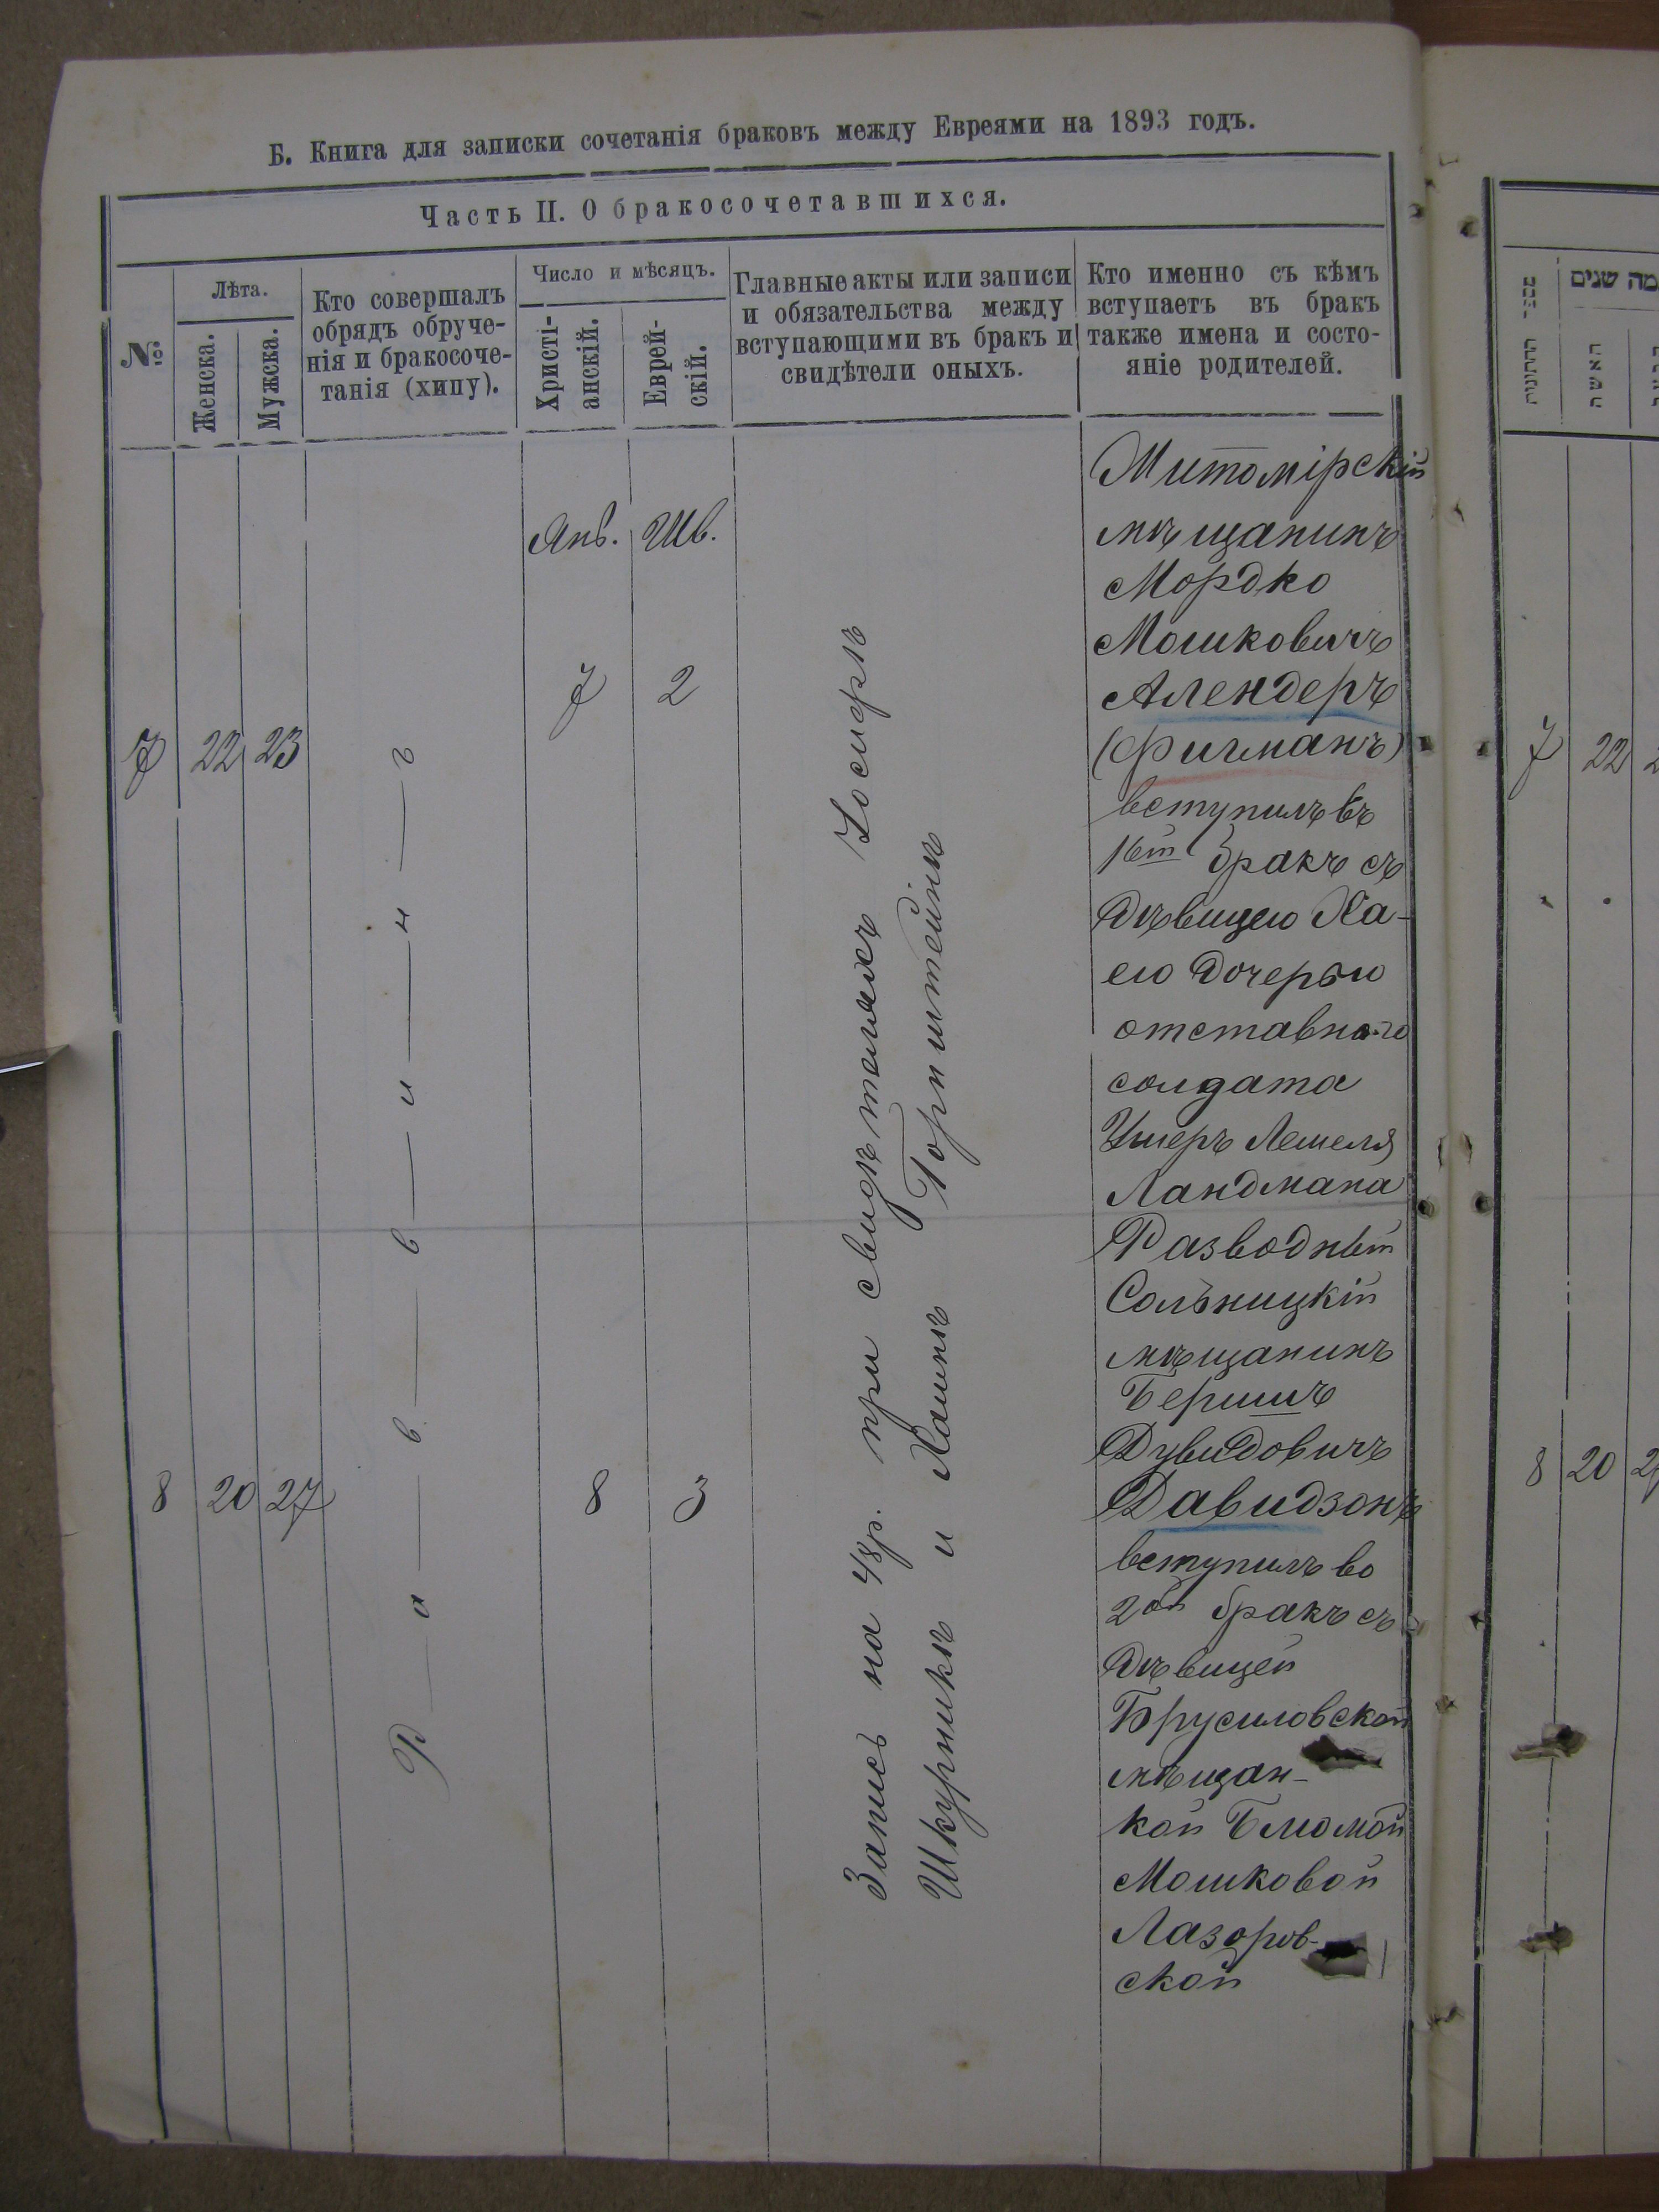 Б. Книга для записки сочетанія браковъ между Евреями на 1893 годъ.
Часть II. О бракосочетавшихся.
№
Лѣта.
Женска.
Мужска.
Кто совершалъ
обрядъ обруче-
нія и бракосоче-
танія (хипу).
Число и мѣсяцъ.
Христі-
анскій.
Еврей-
скій.
Главные акты или записи
и обязательства между
вступающими въ бракъ и
свидѣтели оныхъ.
Кто именно съ кѣмъ
вступаетъ въ бракъ
также имена и состо-
яніе родителей.
Янв. Шв.
7 22 23
7 2
Житомірскій
мѣщанинъ
Мордко
Мошковичъ
Алендеръ
(Фигманъ)
вступилъ въ
1ый бракъ съ
дѣвицею Ха-
ею дочерью
отставного
солдата
Ушеръ Лемеля
Ландмана
8 20 27
8 3
Разводный
Сольницкій
мѣщанинъ
Бершъ
Дувидовичъ
Давидзонъ
вступилъ во
2ой бракъ съ
дѣвицей
Брусиловской
мѣщан-
кой Блюмой
Мошковой
Лазоров-
ской
Р — а — в — в — и — н — ъ
Запись на 48р. при свидѣтеляхъ Іосифѣ
Шкурникѣ и Хаимѣ Горнштейнѣ
מה שנים
האשה
7 22
8 20 27